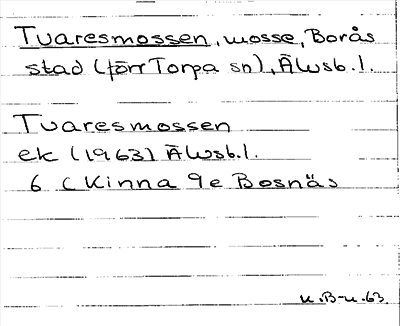 Tvaresmossen, mosse, Borås
stad (förr Torpa sn), Älvsb. l.
Tvaresmossen
ek (1963) Älvsb. l.
6 C Kinna 9e Bosnäs
u.B-u.63.